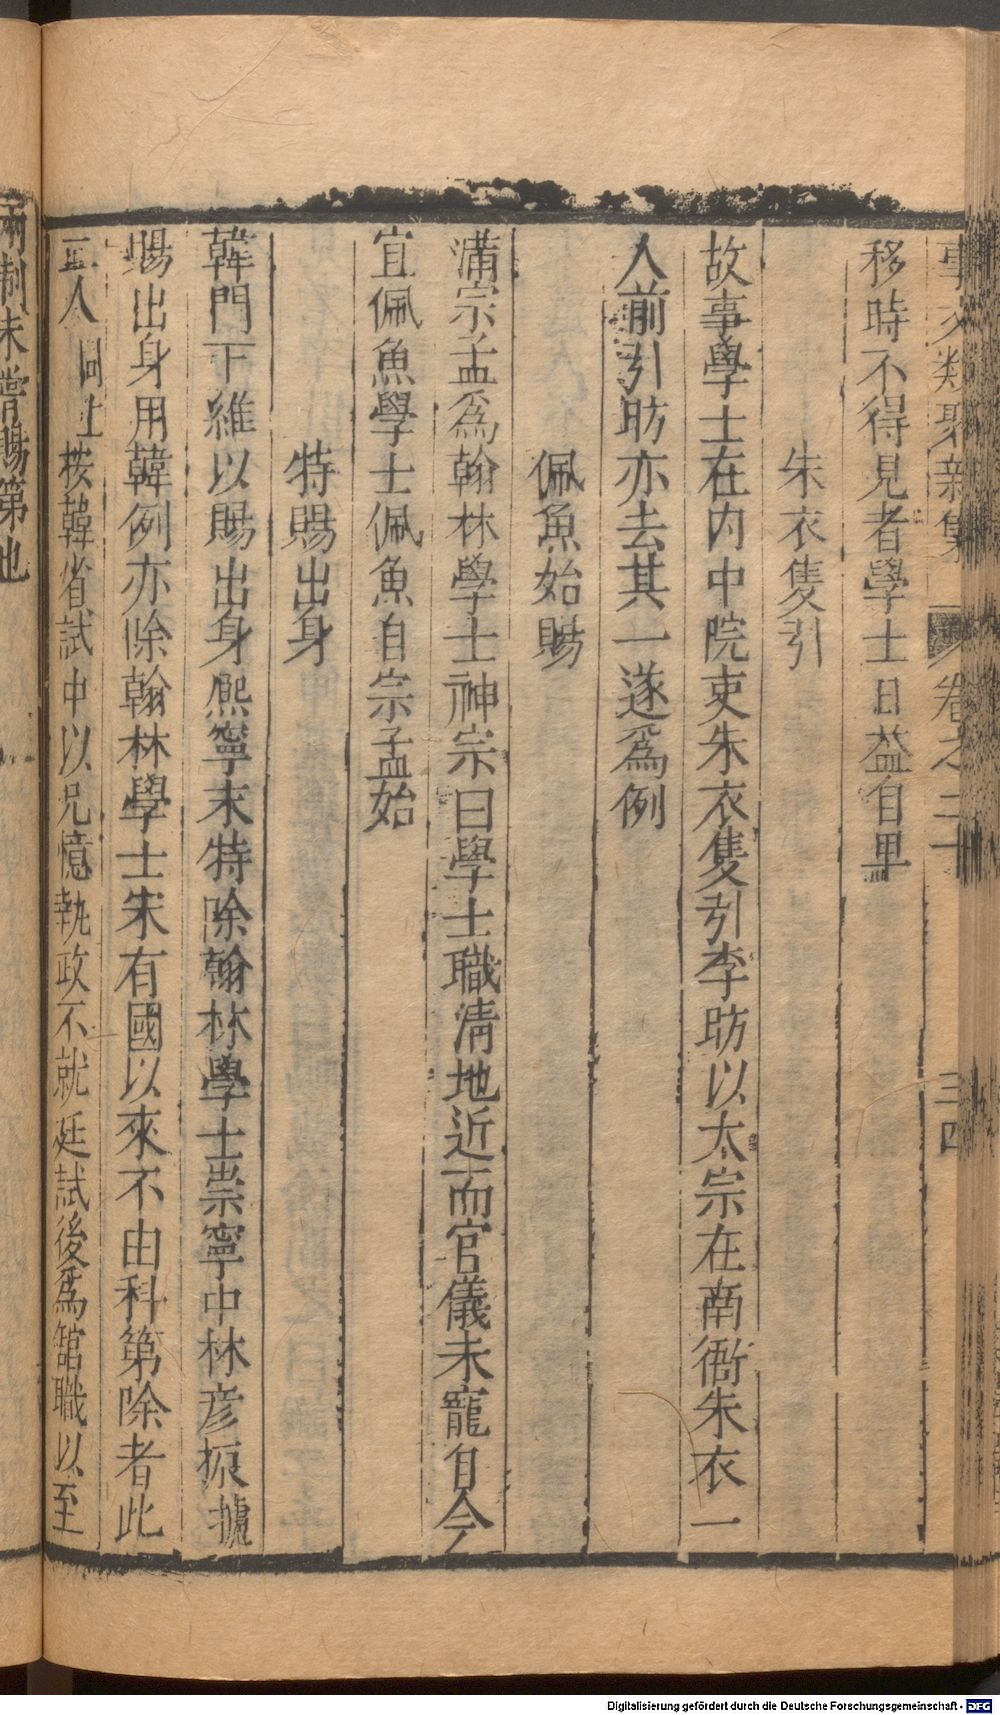 事文類聚新集 卷之二十 三四
移時不得見者學士日益自卑
朱衣隻引
故事學士在内中院吏朱衣隻引李昉以太宗在南衙朱衣一
人前引昉亦去其一遂爲例
佩魚始賜
蒲宗孟爲翰林學士神宗曰學士職清地近而官儀未寵自今
宜佩魚學士佩魚自宗孟始
特賜出身
韓門下維以賜出身熈寧末特除翰林學士崇寧中林彦振攄
賜出身用韓例亦除翰林學士宋有國以來不由科第除者此
二人 同上 按韓省試中以兄憶執政不就廷試後爲舘職以至
兩制未嘗賜第也
Digitalisierung gefördert durch die Deutsche Forschungsgemeinschaft - DFG